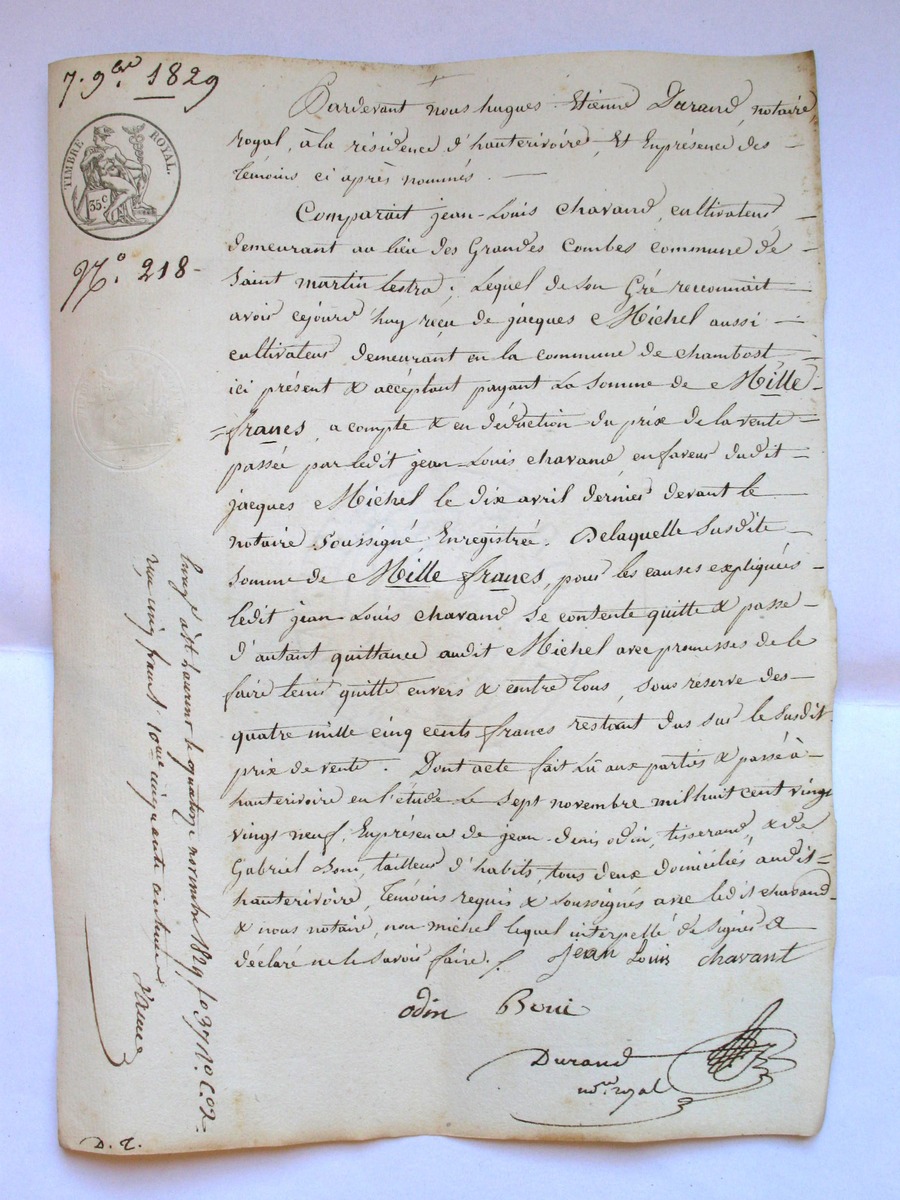 7. 9bre 1829
TIMBRE ROYAL.
35 c
N.o 218-
Pardevant nous hugues Etienne Durand, notaire
royal, à la résidence d'hauterivoire, Et Enprésence des
témoins ci après nommés.
Comparait jean-Louis chavand, cultivateur
demeurant au lieu des Grandes Combes commune de
Saint martin lestra; Lequel de son Gré reconnait
avoir cejourd'huy reçu de jacques Michel aussi
cultivateur demeurant en la commune de chambost
ici présent & acceptant payant La somme de Mille
francs, a compte & en déduction du prix de la vente
passée par ledit jean-Louis chavand en faveur dudit
jacques Michel le dix avril dernier devant le
notaire soussigné, Enregistrée. Delaquelle susdite
somme de Mille francs, pour les causes expliquées
ledit jean Louis chavand se contente quitte & passe
d'autant quittance audit Michel avec promesses de le
faire tenir quitte envers & contre tous, sous reserve des
quatre mille cinq cents francs restant dus sur le susdit
prix de vente. Dont acte fait Lû aux parties & passé à
hauterivoire en l'étude Le sept novembre mil huit cent vingt
vingt neuf, Enprésence de jean-denis odin, tisserand, & de
Gabriel Boni, tailleur d'habits, tous deux domiciliés audit
hauterivoire, Témoins requis & soussignés avec ledit chavand
& nous notaire, non michel lequel interpellé de signer a
déclaré ne le savoir faire. /.
jean Louis chavant
odin Boni
Durand
nore royal
Enregé à St Laurent le quatorze novembre 1829, fo 37 Vo C. 02.
reçu cinq francs 10me cinquante centimes
D. E.